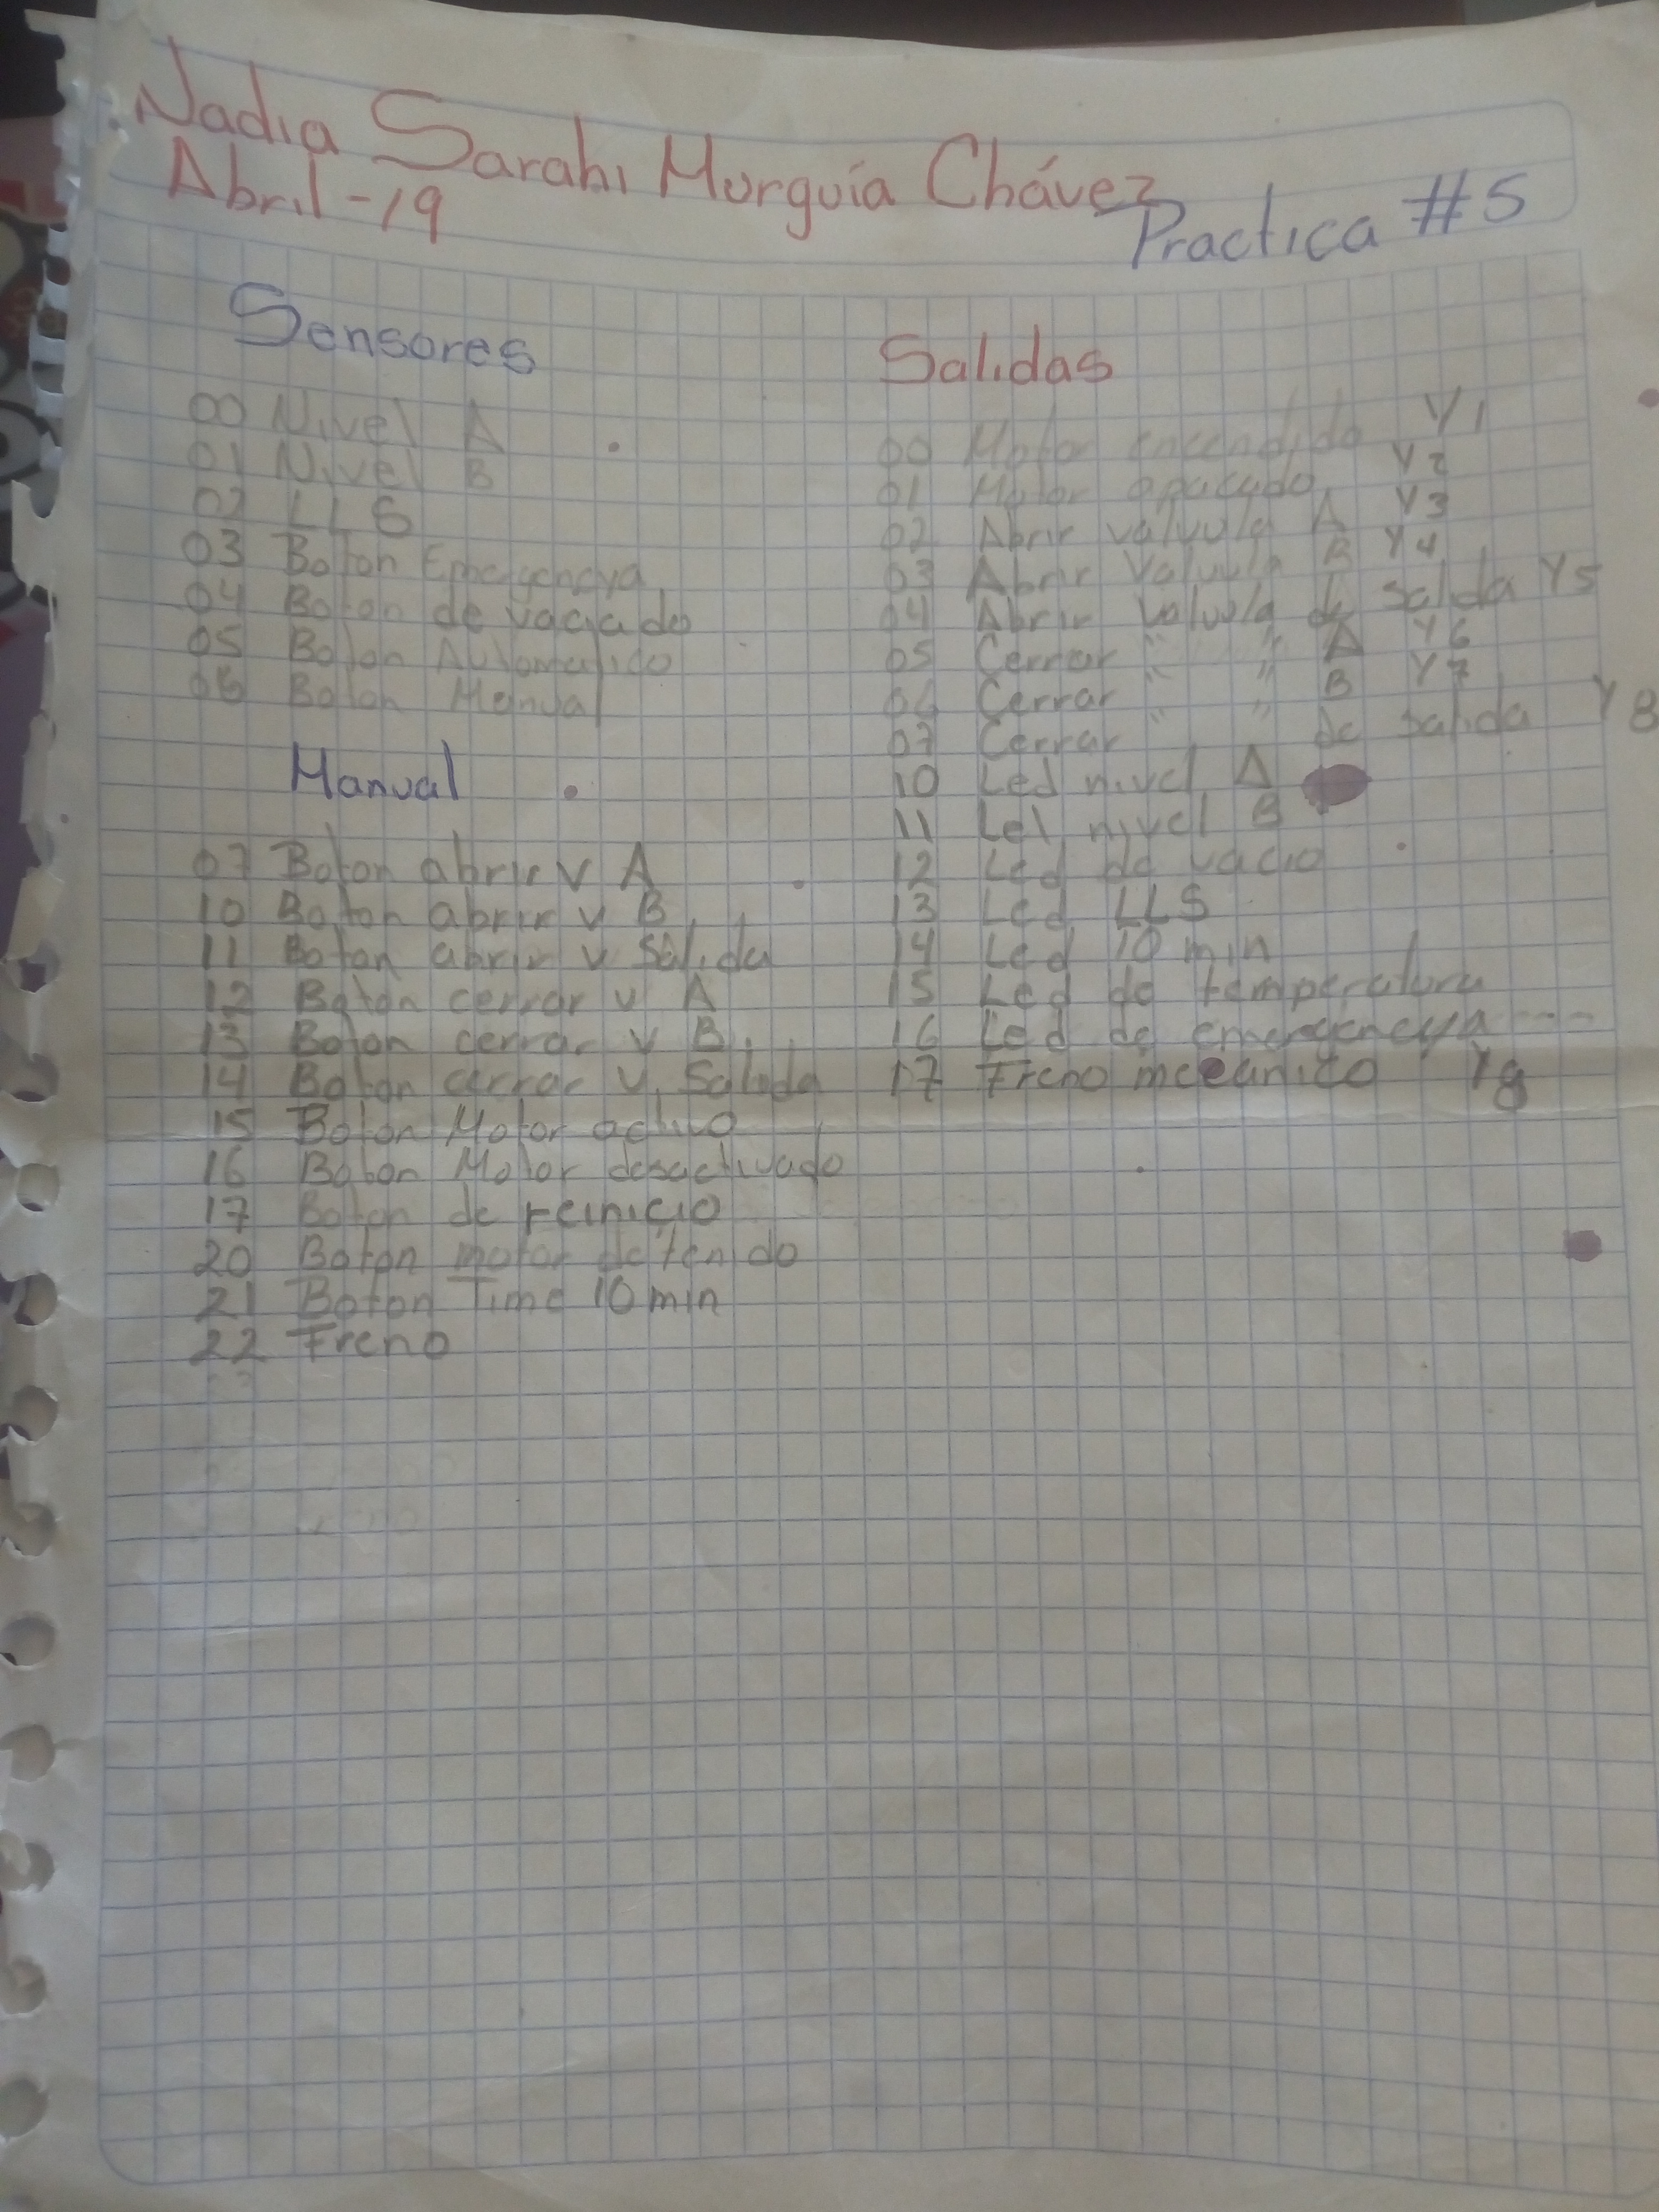 Nadia Sarahi Murguía Chávez
Abril-19
Practica #5
Sensores
00 Nivel A
01 Nivel B
02 LLS
03 Boton Emergencya
04 Boton de vaciado
05 Boton Automatico
06 Boton Manual
Manual
07 Boton abrir v A
10 Boton abrir v B
11 Boton abrir v Salida
12 Boton cerrar v A
13 Boton cerrar v B
14 Boton cerrar v Salida
15 Boton Motor activo
16 Boton Motor desactivado
17 Boton de reinicio
20 Boton motor detenido
21 Boton Time 10 min
22 Freno
Salidas
00 Motor encendido Y1
01 Motor apagado Y2
02 Abrir valvula A Y3
03 Abrir Valvula B Y4
04 Abrir Valvula de salida Y5
05 Cerrar " " A Y6
06 Cerrar " " B Y7
07 Cerrar " " de salida Y8
10 Led nivel A
11 Lel nivel B
12 Led de vacio
13 Led LLS
14 Led 10 min
15 Led de temperatura
16 Led de emergencya ---
17 Freno mecanico Y9